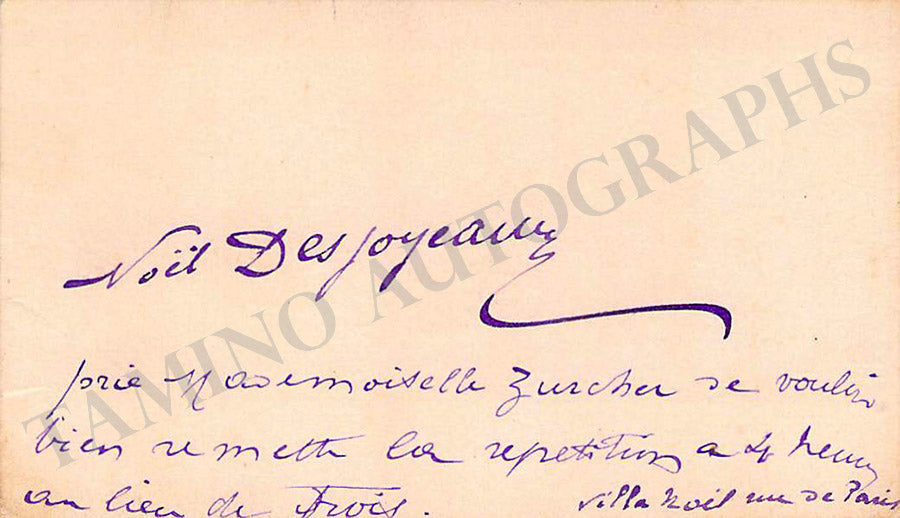 Noël Desjoyeaux
prie Mademoiselle Zurcher de vouloir
bien remettre la repetition a 4 heures
au lieu de trois.
Villa Noël rue de Paris
TAMINO AUTOGRAPHS